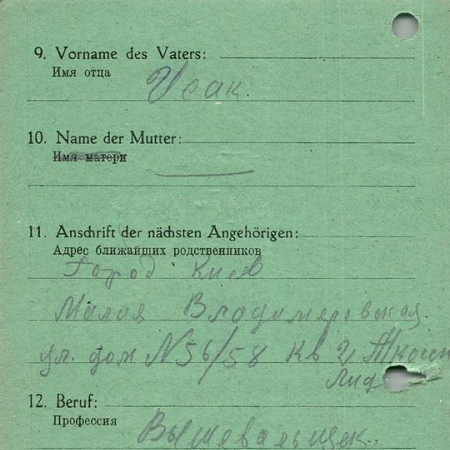 9. Vorname des Vaters:
Имя отца
Исак.
10. Name der Mutter:
Имя матери
11. Anschrift der nächsten Angehörigen:
Адрес ближайших родственников
Город Киев
Малая Владимировская
ул. дом N 56/58 Кв 2,
12. Beruf:
Профессия
Вышевальщек.